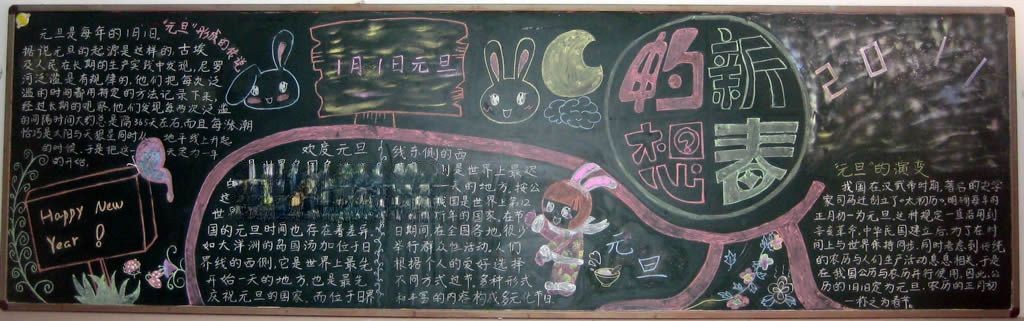 "元旦"形成的传说
元旦是每年的1月1日,
据说元旦的起源是这样的,古埃
及人民在长期的生产实践中发现,尼罗
河泛滥是有规律的,他们把每次泛
滥的时间都用特定的方法记录下来,
经过长期的观察,他们发现每两次泛滥
的间隔时间大约总是隔365天左右,而且每涨潮
恰巧是太阳与天狼星同时从地平线上升起
的时候,于是把这一天定为一年
的开始.
Happy New
Year !
1月1日元旦
欢度元旦
国的元旦时间也存在着差异,
如大洋洲的岛国汤加位于日
界线的西侧,它是世界上最先
开始一天的地方,也是最先
庆祝元旦的国家,而位于日界
线东侧的西
则是世界上最迟
一天的地方,按公
我国是世界上第12
新年的国家,在节
日期间,在全国各地,很少
举行群众性活动,人们
根据个人的爱好选择
不同方式过节,多种形式
和丰富的内容构成多元化节日.
元旦
新春
的
想
2011
"元旦"的演变
我国在汉武帝时期,著名的史学
家司马迁创立了"太初历",明确每年的
正月初一为元旦,这种规定一直沿用到
辛亥革命,中华民国建立后,为了在时
间上与世界保持同步,同时考虑到传统
的农历与人们生产活动息息相关,于是
在我国公历与农历并行使用,因此,公
历的1月1日定为元旦,农历的正月初
一称之为春节.